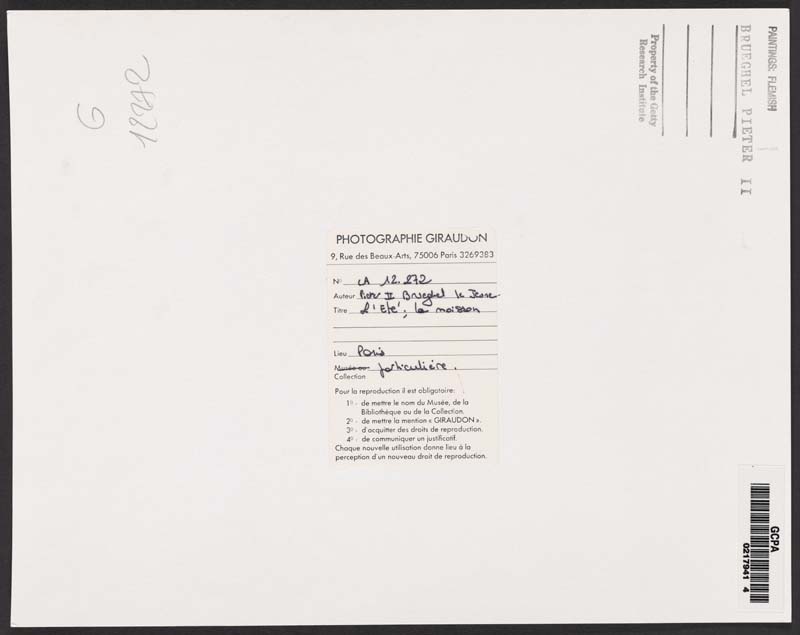 PAINTINGS: FLEMISH
BRUEGHEL PIETER II
Property of the Getty
Research Institute
G
12272
PHOTOGRAPHIE GIRAUDON
9, Rue des Beaux-Arts, 75006 Paris 3269383
No LA 12.272
Auteur Pieter II Brueghel le Jeune
Titre L'Eté; la moisson
Lieu Paris
Musée ou particulière.
Collection
Pour la reproduction il est obligatoire:
1o - de mettre le nom du Musée, de la
Bibliothèque ou de la Collection.
2o - de mettre la mention « GIRAUDON ».
3o - d'acquitter des droits de reproduction.
4o - de communiquer un justificatif.
Chaque nouvelle utilisation donne lieu à la
perception d'un nouveau droit de reproduction.
GCPA
0217941 4